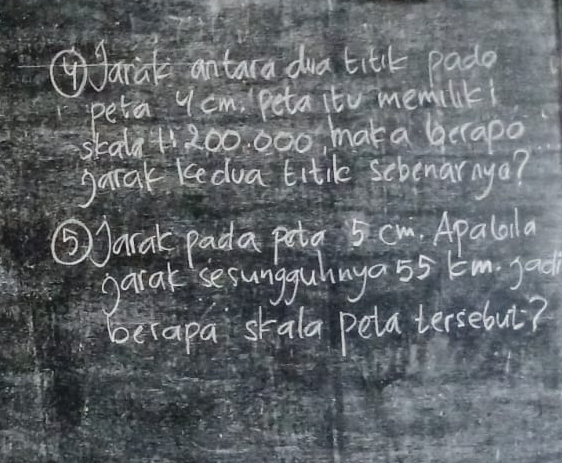 ④ Jarak antara dua titik pada
peta 4 cm. Peta itu memiliki
skala 1:200.000, maka berapa
jarak kedua titik sebenarnya?
⑤ Jarak pada peta 5 cm. Apabila
jarak sesungguhnya 55 km. jadi
berapa skala peta tersebut?